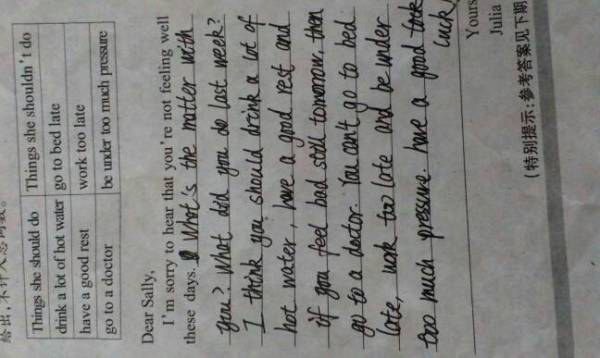 给出,不计入总词数。
Things she should do Things she shouldn't do
drink a lot of hot water go to bed late
have a good rest work too late
go to a doctor be under too much pressure
Dear Sally,
I'm sorry to hear that you're not feeling well
these days. What's the matter with
you? What did you do last week?
I think you should drink a lot of
hot water, have a good rest and
if you feel bad still tomorrow, then
go to a doctor. You can't go to bed
late, work too late and be under
too much pressure. have a good
luck,
Yours
Julia
(特别提示:参考答案见下期